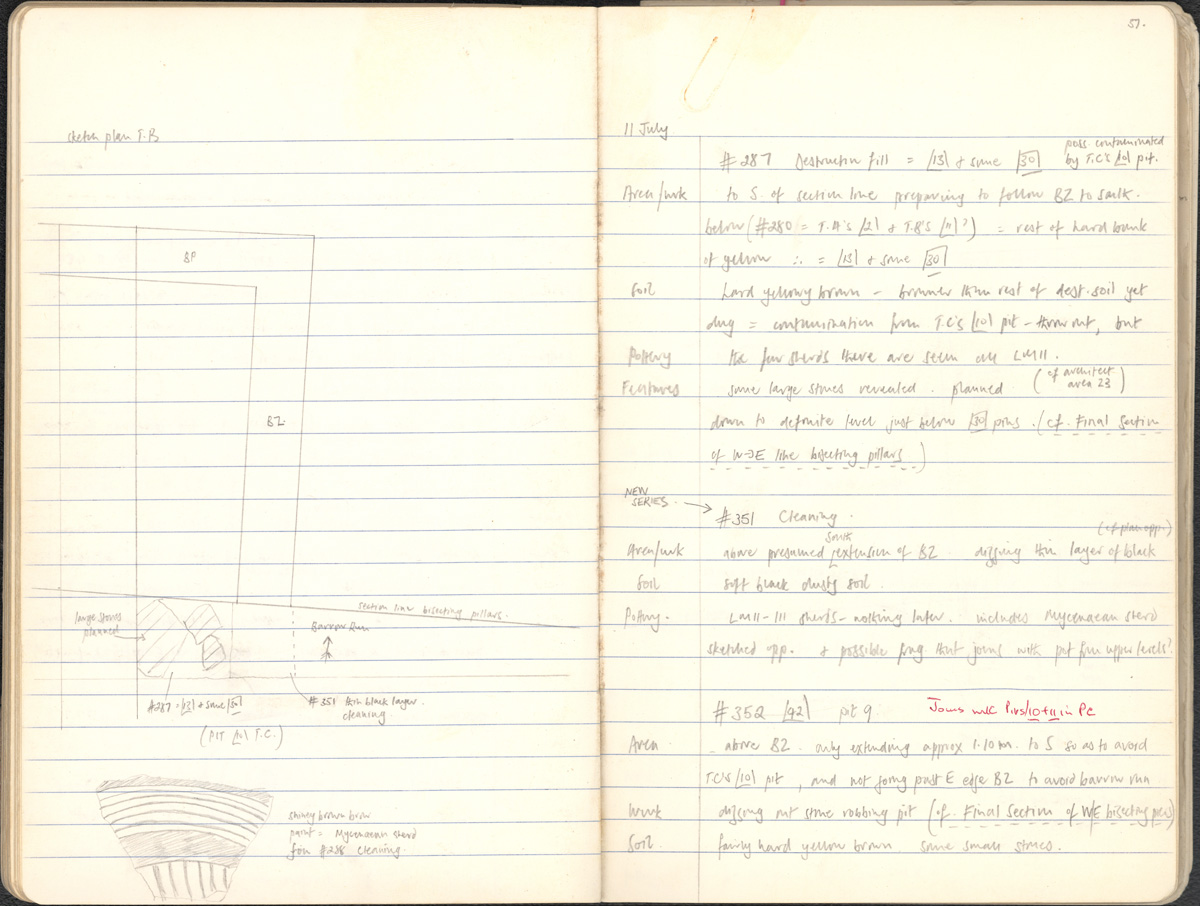 sketch plan T.B
BP
BZ
section line bisecting pillars.
large stones
planned
Barrow Run
#287 = /13\ & some /30\
#351 thin black layer.
cleaning
(PIT /10\ T.C.)
shiney brown
paint = Mycenaean sherd
cleaning.
57.
11 July
#287 Destruction fill = /13\ & some /30\ poss. contaminated
by T.C's /10\ pit.
Area/work to S. of section line preparing to follow BZ to south.
below (#280 = T.A's /2\ & T.B's /11\?) = rest of hard bank
of yellow ∴ = /13\ & some /30\
Soil hard yellowy brown - browner than rest of dest. soil yet
dug = contamination from T.C's /10\ pit - throw out, but
Pottery the few sherds there are seem all LMII.
Features some large stones revealed. planned (cf architect
area 23)
down to definite level just below /30\ pins. (cf. Final Section
of W→E line bisecting pillars)
NEW
SERIES →
#351 Cleaning.
Area/work above presumed south extension of BZ digging thin layer of black (cf plan opp.)
Soil soft black dusty soil.
Pottery. LMII-III sherds - nothing later. includes Mycenaean sherd
sketched opp. & possible frag that joins with pot from upper levels?
#352 /92\ pit 9 Joins with Pits /10+11 in PC
Area - above BZ. only extending approx 1.10m. to S so as to avoid
T.C's /10\ pit, and not going past E edge BZ to avoid barrow run
Work digging out stone robbing pit (cf. Final Section of W/E bisecting piers)
Soil. fairly hard yellow brown. some small stones.